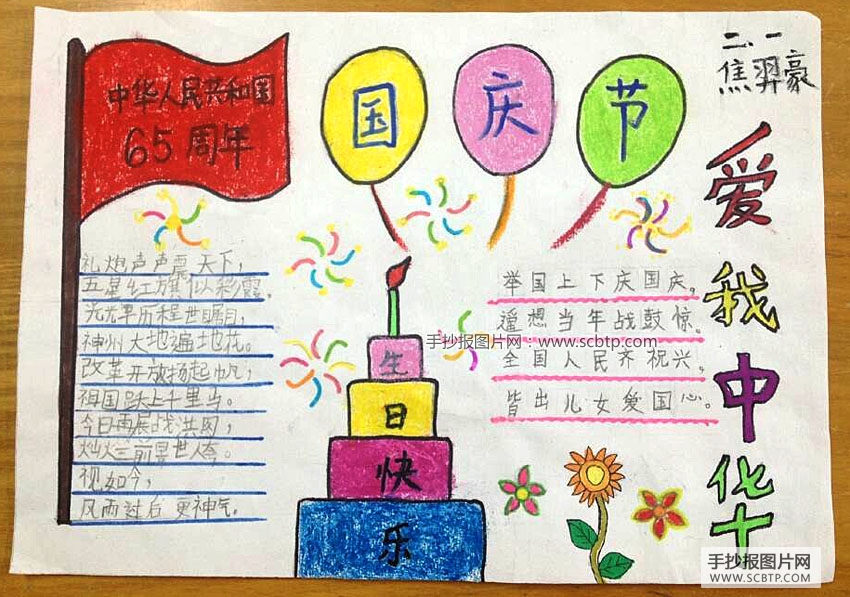 中华人民共和国
65周年
国庆节
二、一
焦羿豪
爱我中华
礼炮声声震天下，
五星红旗似彩霞。
光荣历程世瞩目，
神州大地遍地花。
改革开放扬起帆，
祖国跃上千里马。
今日再展戏洪图，
灿火三前景世人夸。
视如今，
风雨过后更神气。
举国上下庆国庆。
遥想当年战鼓惊。
全国人民齐祝兴，
皆出儿女爱国心。
生
日
快
乐
手抄报图片网：www.scbtp.com
手抄报图片网
WWW.SCBTP.COM